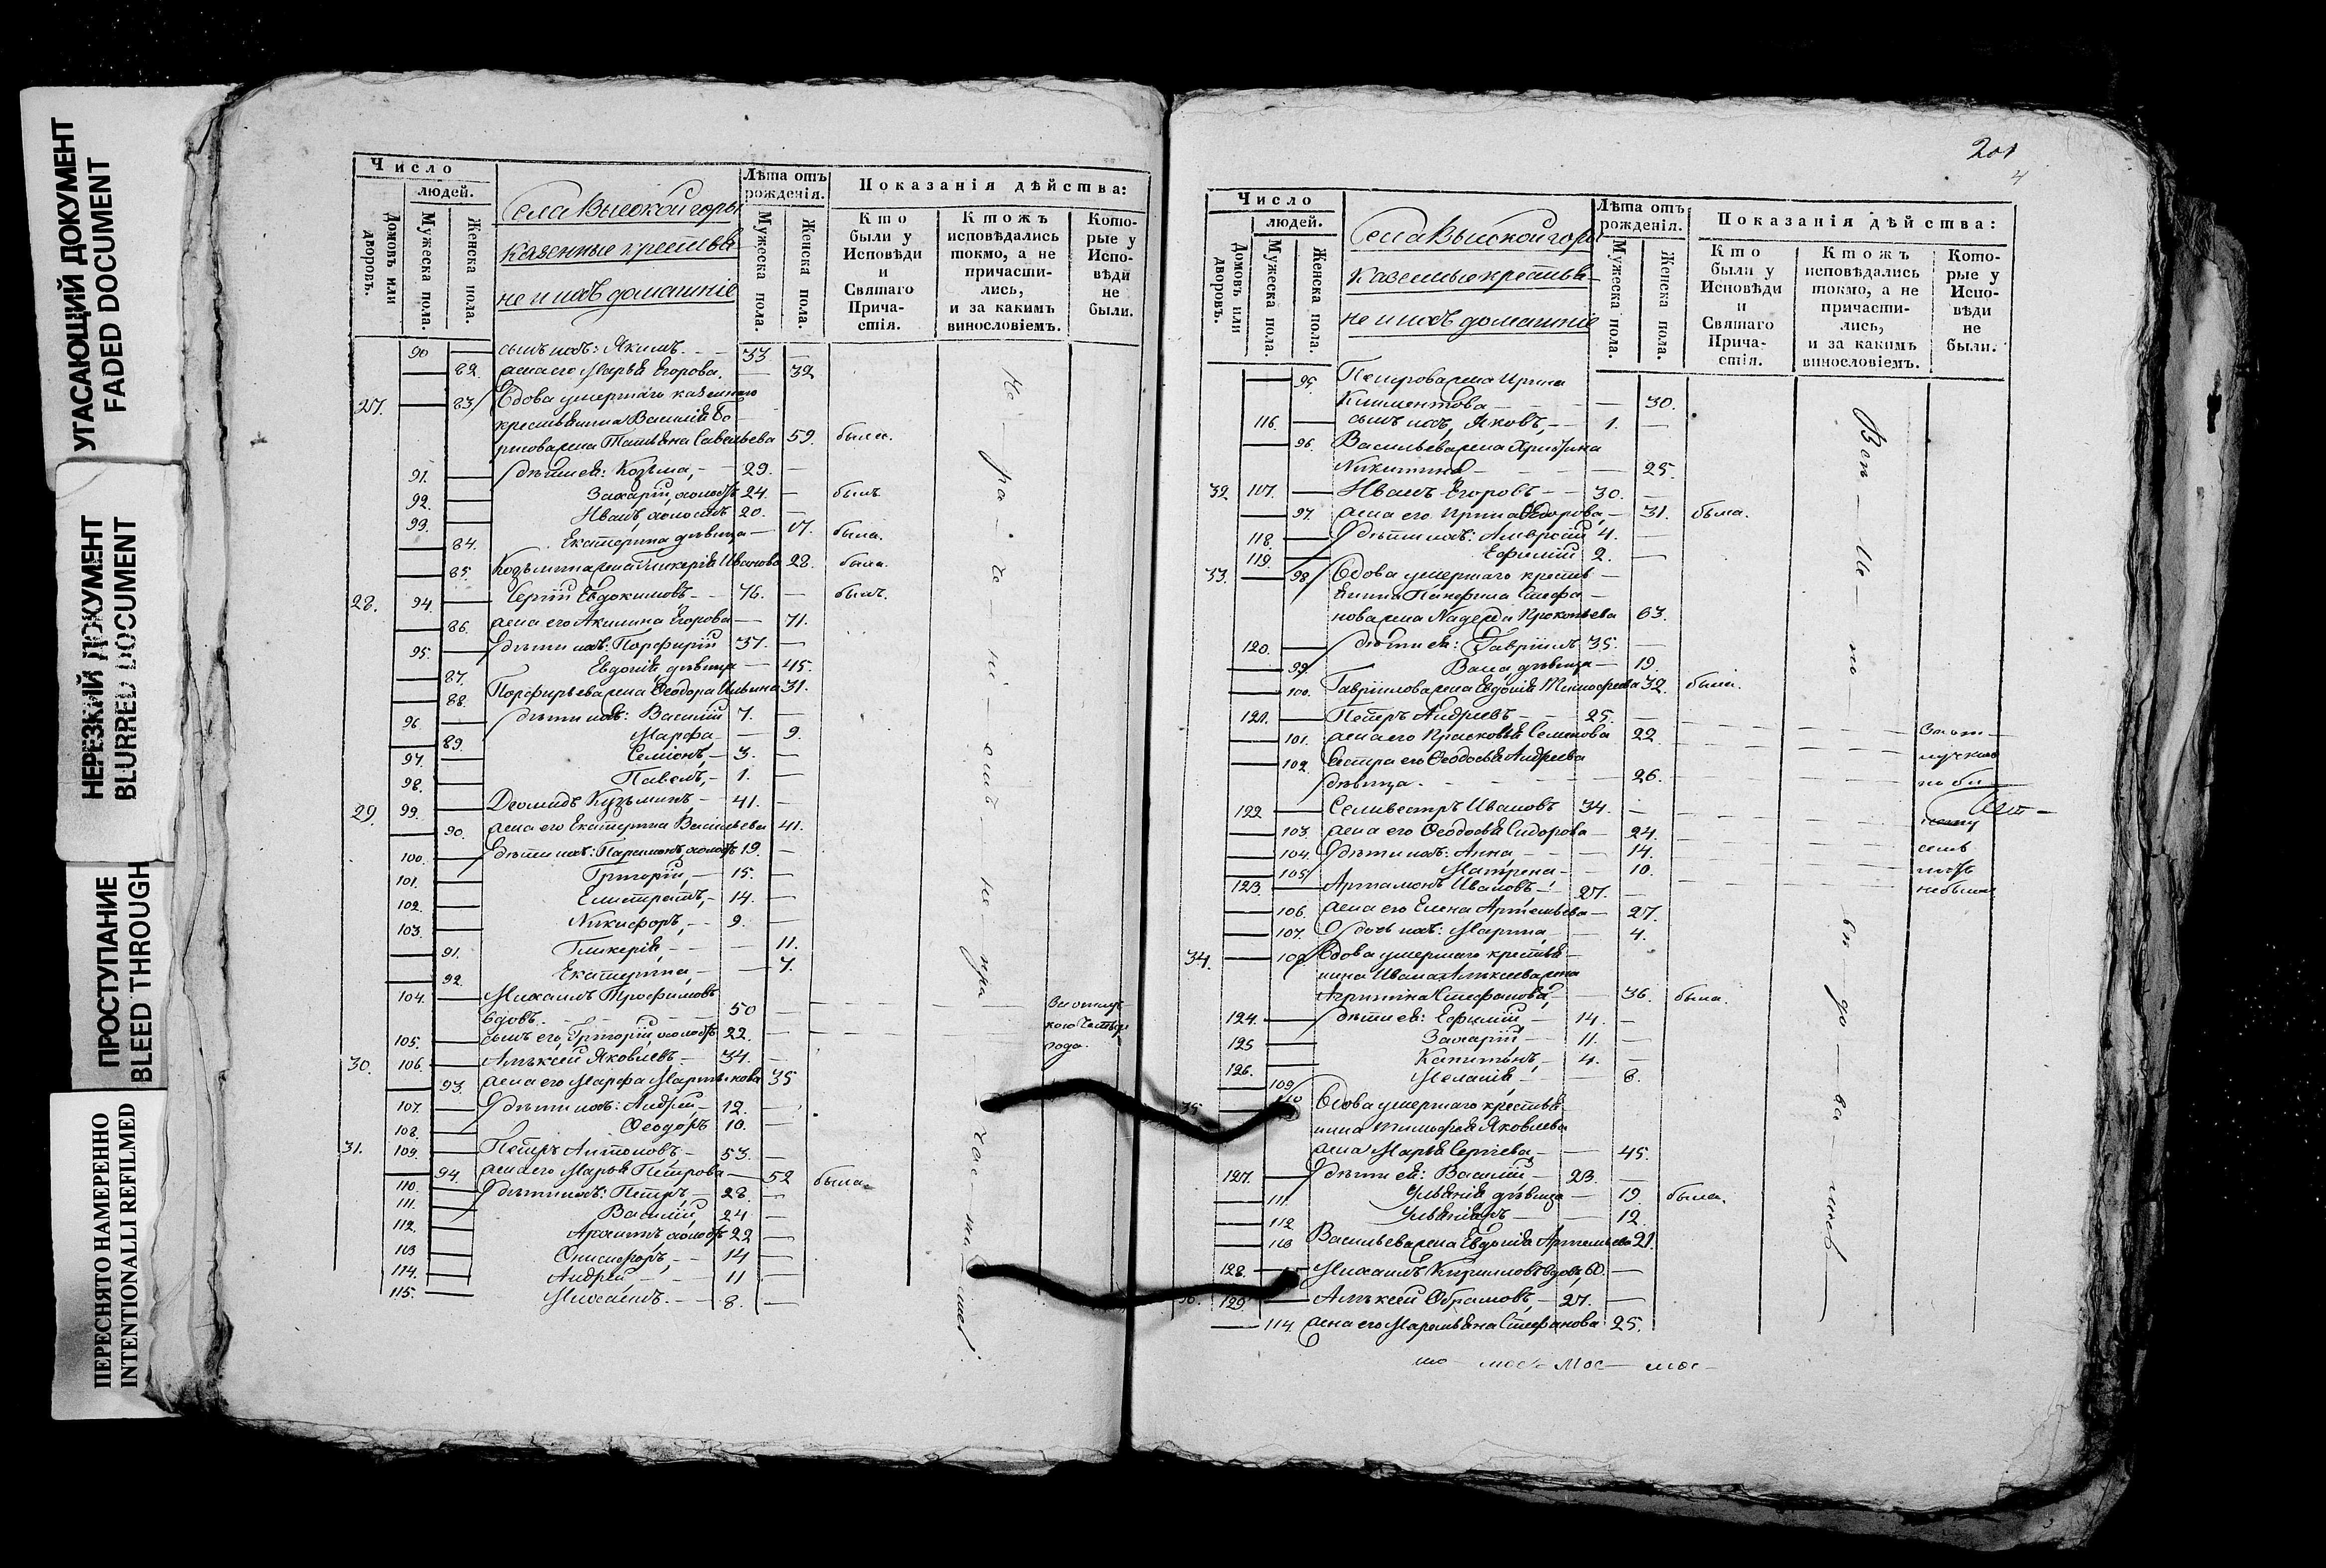 УГАСАЮЩИЙ ДОКУМЕНТ
FADED DOCUMENT
НЕРЕЗКИЙ ДОКУМЕНТ
BLURRED DOCUMENT
ПРОСТУПАНИЕ
BLEED THROUGH
ПЕРЕСНЯТО НАМЕРЕННО
INTENTIONALLI REFILMED
Число
людей.
Домовъ или дворовъ.
Мужеска пола.
Женска пола.
Села Высокой горы
казенные крестья-
не и ихъ домашніе
Лѣта отъ рожденія.
Мужеска пола.
Женска пола.
Показанія дѣйства:
Кто были у Исповѣди и Святаго Прича-стія.
Ктожъ исповѣдались токмо, а не причасти-лись, и за какимъ винословіемъ.
Кото-рые у Испо-вѣди не были.
90 сынъ ихъ: Якимъ 33
82. жена его Марья Егорова. 32
27. 83 Вдова умершаго казеннаго
крестьянина Василія Бо-
рисова жена Татьяна Савельева 59. была.
91. дѣти ея: Козьма, 29.
92. Захарій, холостъ 24. былъ
93. Иванъ, холостъ 20.
84. Екатерина дѣвица 17. была.
85. Козьмина жена Гликерія Иванова 28. была.
28. 94. Сергій Евдокимовъ 76. былъ.
86. жена его Акилина Егорова 71.
95. дѣти ихъ: Порфирій 37.
87. Евдокія, дѣвица 45.
88. Порфирьева жена Ѳеодора Ильина 31.
96. дѣти ихъ: Василій 7.
89. Марфа 9.
97. Семіонъ, 3.
98. Павелъ, 1.
29. 99. Діомидъ Кузьминъ, 41.
90. жена его Екатерина Васильева 41.
100. дѣти ихъ: Парамонъ, холостъ 19.
101. Григорій, 15.
102. Елистратъ, 14.
103. Никифоръ, 9.
91. Гликерія, 11.
92. Екатерина, 7.
104. Михаилъ Трофимовъ
вдовъ. 50
105. сынъ его, Григорій, холостъ 22.
30. 106. Алексѣй Яковлевъ 34.
93. жена его Марфа Мартынова 35
107. дѣти ихъ: Андрей 12.
108. Ѳеодоръ 10.
31. 109. Петръ Антоновъ, 53.
94. жена его Марья Петрова 52 была.
110. дѣти ихъ: Петръ, 28.
111. Василій, 24
112. Архипъ, холостъ 22
113 Онисифоръ, 14
114. Андрей, 11
115. Михаилъ. 8.
201
4
Число
людей.
Домовъ или дворовъ.
Мужеска пола.
Женска пола.
Села Высокой горы
казенные крестья-
не и ихъ домашніе
Лѣта отъ рожденія.
Мужеска пола.
Женска пола.
Показанія дѣйства:
Кто были у Исповѣди и Святаго Прича-стія.
Ктожъ исповѣдались токмо, а не причасти-лись, и за какимъ винословіемъ.
Кото-рые у Испо-вѣди не были.
95. Петрова жена Ирина
Климентова 30.
116. сынъ ихъ, Яковъ, 1.
96. Васильева жена Христина
Никитина 25.
32. 117. Иванъ Егоровъ 30.
97. жена его Ирина Ѳедорова, 31. была.
118. дѣти ихъ: Амвросій 4.
119. Ефимій 2.
33. 98 Вдова умершаго кресть-
янина Панфила Стефа-
нова жена Надежда Прокопьева 63.
120. дѣти ея: Гавріилъ 35.
99. Васа, дѣвица 19.
100. Гавриилова жена Евдокія Тимофеева 32. была.
121. Петръ Андреевъ 25.
101. жена его Прасковья Семенова 22
102. Сестра его Ѳеодосья Андреева
дѣвица. 26.
122 Селивестръ Ивановъ 34.
103. жена его Ѳеодосья Сидорова 24.
104. дѣти ихъ: Анна, 14.
105 Матрена, 10.
123 Артамонъ Ивановъ, 27.
106. жена его Елена Артемьева 27.
107. дочь ихъ: Марина, 4.
34. 108 Вдова умершаго крестья-
нина Ивана Алексѣева жена
Агрипина Стефанова, 36. была.
124. дѣти ея: Ефимій 14.
125 Захарій 11.
126. Капитонъ, 4.
109 Меланія 8.
35 110 Вдова умершаго крестья-
нина Тимофея Яковлева
жена Марья Сергѣева, 45.
127. дѣти ея: Василій 23.
111 Ульянія дѣвица 19. была.
112 12
113 Васильева жена Евдокія Артемьева 21.
128. Михаилъ Кириловъ вдовъ, 60.
36. 129 Алексѣй Обрамовъ, 27.
114. жена его Маремьяна Стефанова 25.